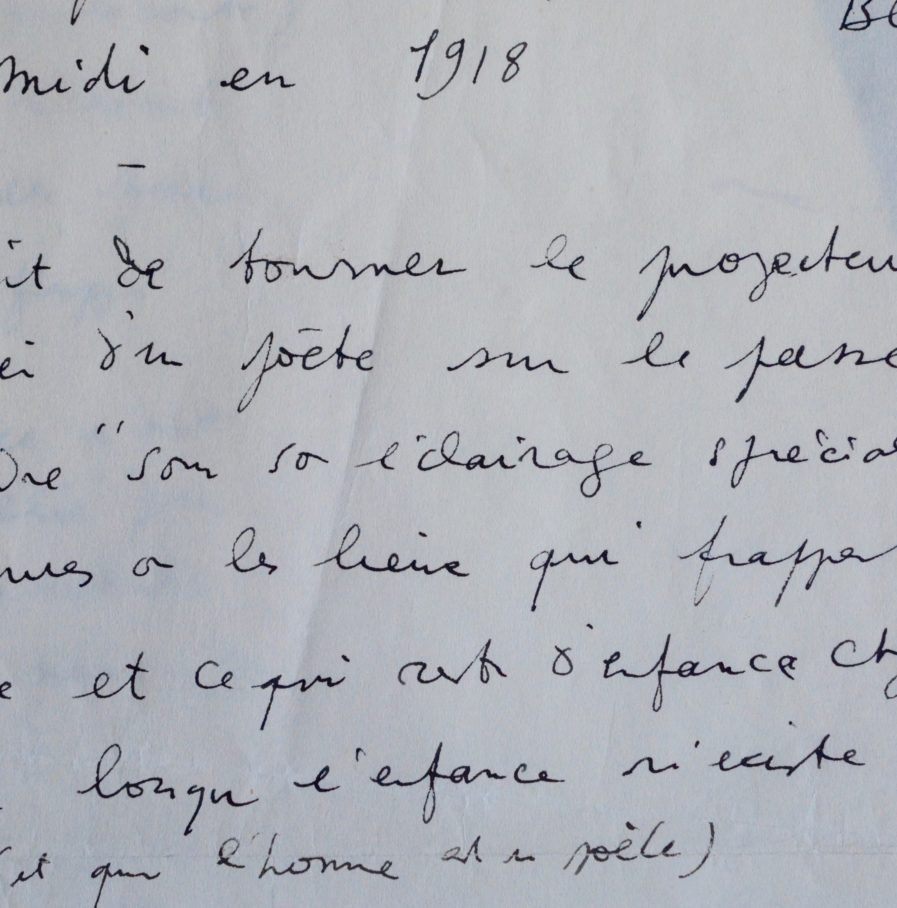 midi en 1918
it de tourner le projecteu
ei d'un poète sur le passe
Ore" son so éclairage spécial
mes a les lieux qui frappen
e et ce qui reste d'enfance ch
lorsqu l'enfance n'existe
et que l'homme est un poète)